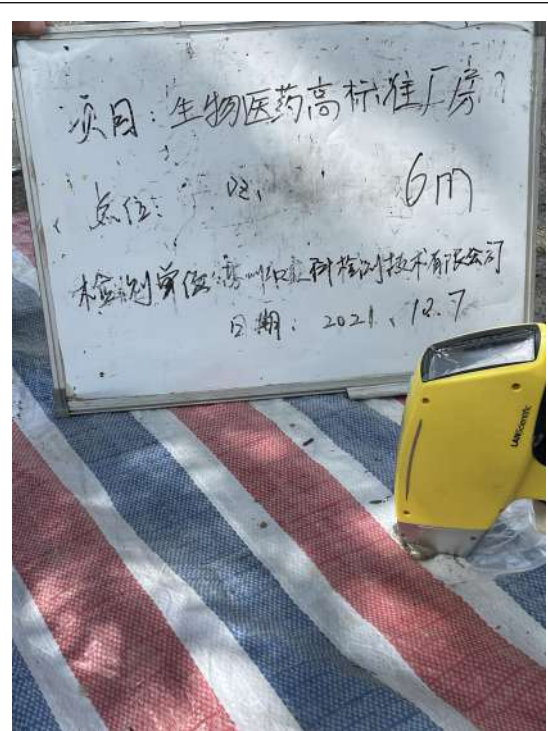 项目:生物医药高标准厂房
点位: 6m
检测单位 科检测技术有限公司
日期: 2021、12.7
LANScientific